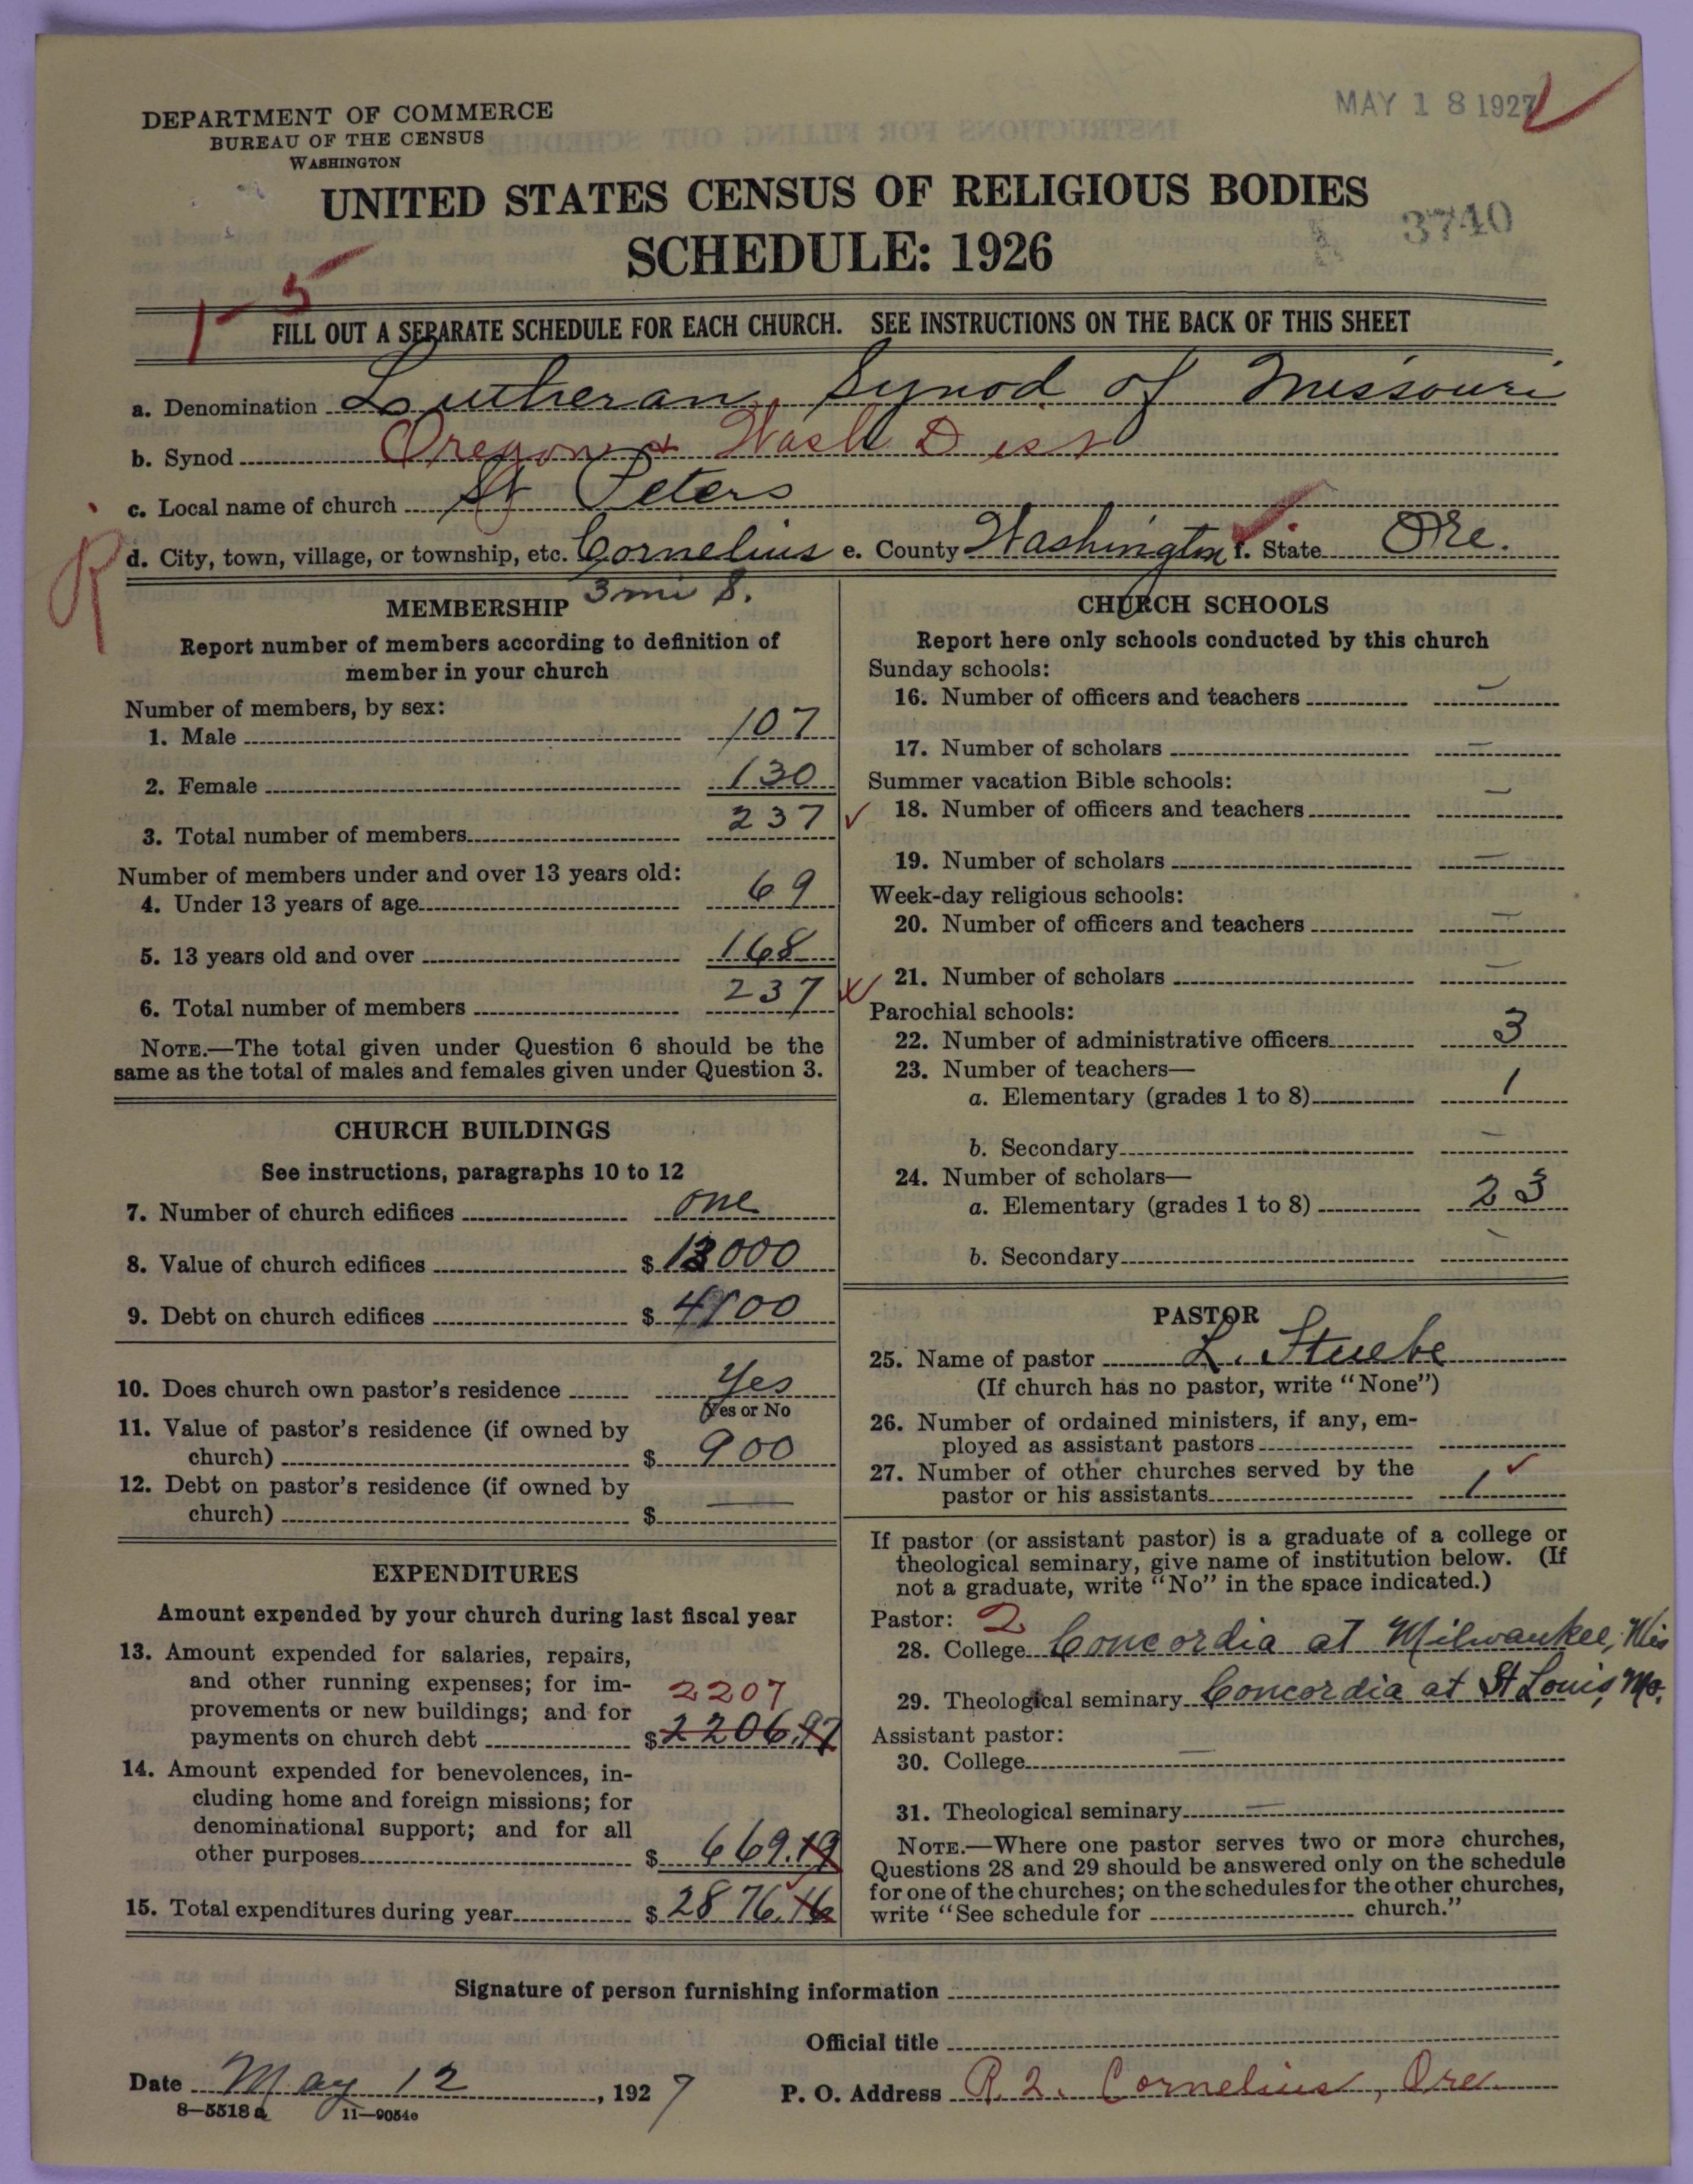 MAY 18 1927
DEPARTMENT OF COMMERCE
BUREAU OF THE CENSUS
WASHINGTON
UNITED STATES CENSUS OF RELIGIOUS BODIES
3740
SCHEDULE: 1926
1-5
FILL OUT A SEPARATE SCHEDULE FOR EACH CHURCH. SEE INSTRUCTIONS ON THE BACK OF THIS SHEET
a. Denomination Lutheran, Synod of Missouri
b. Synod Oregon & Wash Dist
c. Local name of church St Peters
R
d. City, town, village, or township, etc. Cornelius e. County Washington f. State Ore.
3 mi S.
MEMBERSHIP
Report number of members according to definition of
member in your church
Number of members, by sex:
1. Male 107
2. Female 130
3. Total number of members 237
Number of members under and over 13 years old:
4. Under 13 years of age 69
5. 13 years old and over 168
6. Total number of members 237
NOTE.—The total given under Question 6 should be the
same as the total of males and females given under Question 3.
CHURCH BUILDINGS
See instructions, paragraphs 10 to 12
7. Number of church edifices one
8. Value of church edifices $
9. Debt on church edifices $
10. Does church own pastor's residence Yes
(Yes or No
11. Value of pastor's residence (if owned by
church) $ 900
12. Debt on pastor's residence (if owned by
church) $ —
EXPENDITURES
Amount expended by your church during last fiscal year
13. Amount expended for salaries, repairs,
and other running expenses; for im-
provements or new buildings; and for 2207
payments on church debt $ 2206.97
14. Amount expended for benevolences, in-
cluding home and foreign missions; for
denominational support; and for all
other purposes $ 669.19
15. Total expenditures during year $ 2876.16
CHURCH SCHOOLS
Report here only schools conducted by this church
Sunday schools:
16. Number of officers and teachers —
17. Number of scholars —
Summer vacation Bible schools:
18. Number of officers and teachers —
19. Number of scholars —
Week-day religious schools:
20. Number of officers and teachers —
21. Number of scholars —
Parochial schools:
22. Number of administrative officers 3
23. Number of teachers—
a. Elementary (grades 1 to 8) 1
b. Secondary —
24. Number of scholars—
a. Elementary (grades 1 to 8) 23
b. Secondary —
PASTOR
25. Name of pastor L. Stuebe
(If church has no pastor, write "None")
26. Number of ordained ministers, if any, em-
ployed as assistant pastors
27. Number of other churches served by the
pastor or his assistants 1
If pastor (or assistant pastor) is a graduate of a college or
theological seminary, give name of institution below. (If
not a graduate, write "No" in the space indicated.)
Pastor: 2
28. College Concordia at Milwaukee, Wis
29. Theological seminary Concordia at St Louis, Mo.
Assistant pastor:
30. College —
31. Theological seminary —
NOTE.—Where one pastor serves two or more churches,
Questions 28 and 29 should be answered only on the schedule
for one of the churches; on the schedules for the other churches,
write "See schedule for church."
Signature of person furnishing information
Official title
Date May 12, 1927 P. O. Address R. 2. Cornelius, Ore.
8—5518 a 11—9054c